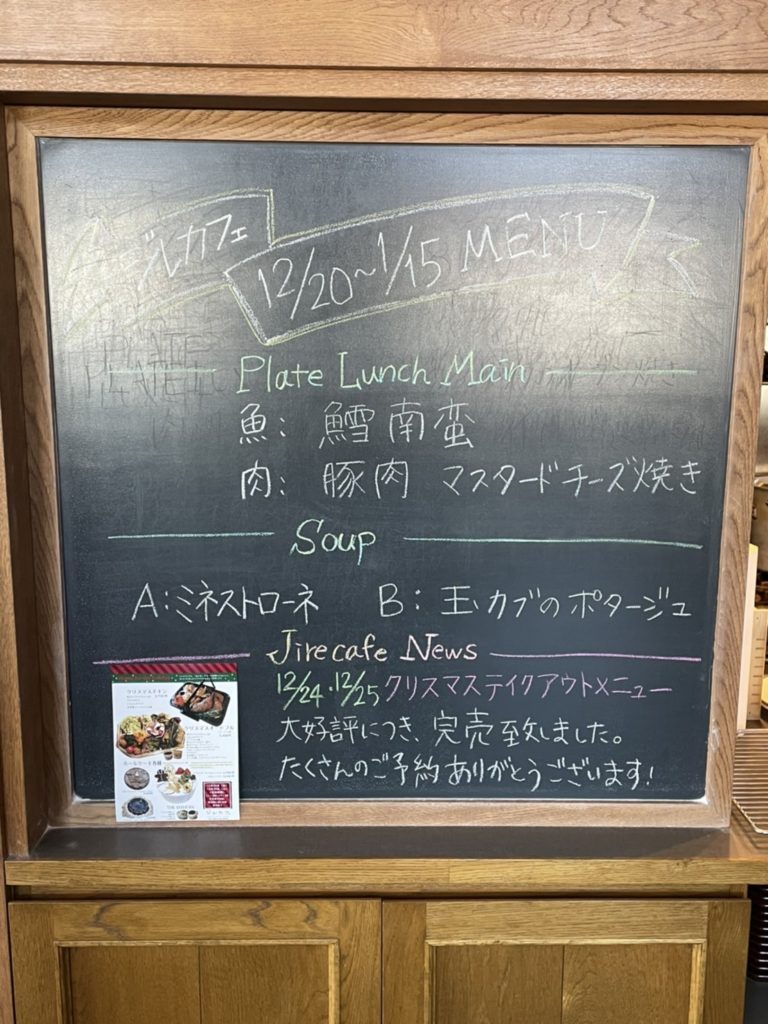 ジルカフェ
12/20~1/15 MENU
Plate Lunch Main
魚: 鱈南蛮
肉: 豚肉 マスタードチーズ焼き
Soup
A:ミネストローネ B: 玉カブのポタージュ
Jirecafe News
12/24・12/25クリスマステイクアウトメニュー
大好評につき、完売致しました。
たくさんのご予約ありがとうございます!
クリスマスチキン
クリスマスオードブル